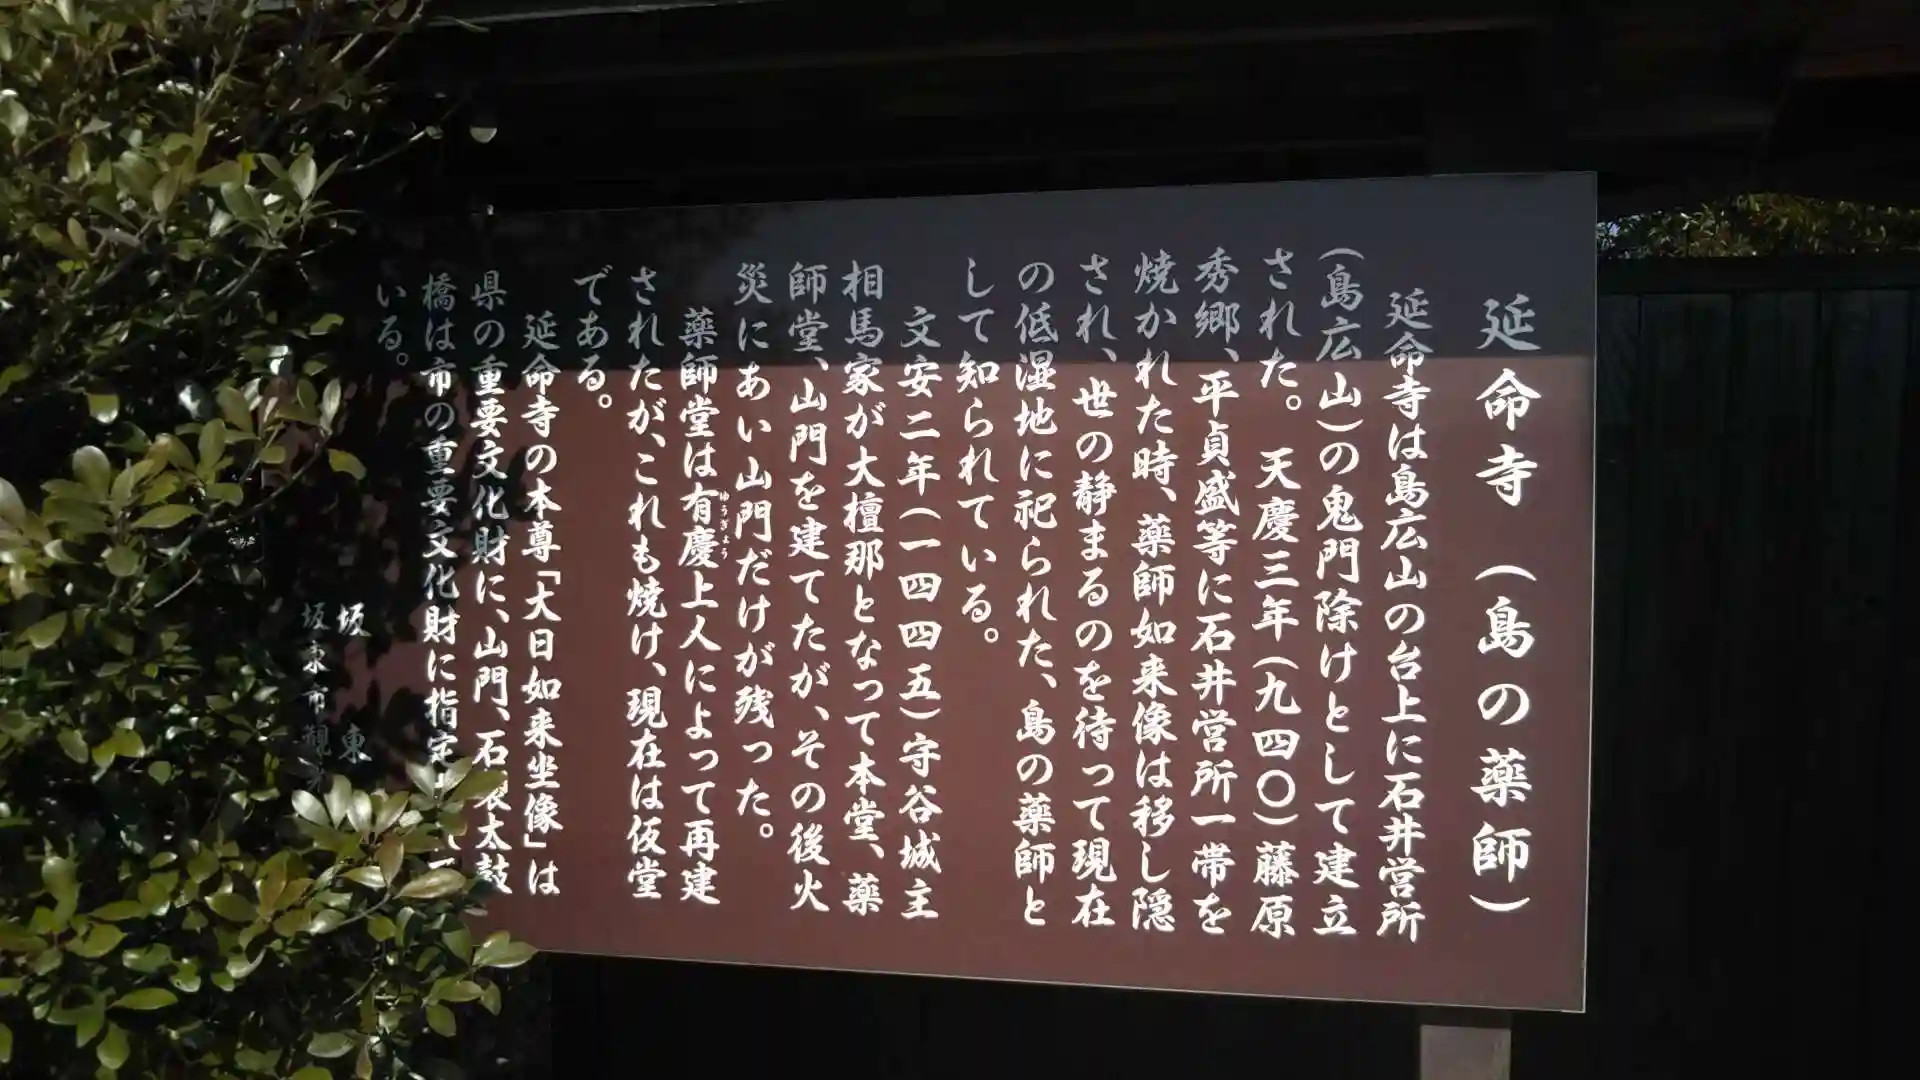 延命寺(島の薬師)
延命寺は島広山の台上に石井営所
(島広山)の鬼門除けとして建立
された。天慶三年(九四〇)藤原
秀郷、平貞盛等に石井営所一帯を
焼かれた時、薬師如来像は移し隠
され、世の静まるのを待って現在
の低湿地に祀られた、島の薬師と
して知られている。
文安二年(一四四五)守谷城主
相馬家が大檀那となって本堂、薬
師堂、山門を建てたが、その後火
災にあい山門だけが残った。
薬師堂は有慶上人によって再建
ゆうぎょう
されたが、これも焼け、現在は仮堂
である。
延命寺の本尊「大日如来坐像」は
県の重要文化財に、山門、石袋太鼓
橋は市の重要文化財に指定
いる。
坂東
坂東市観